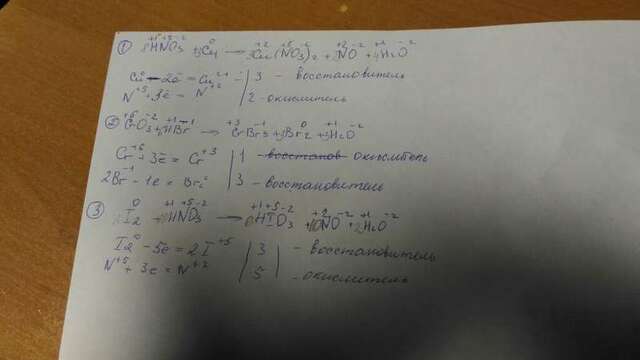 ① 8HNO₃ + 3Cu → 3Cu(NO₃)₂ + 2NO + 4H₂O
Cu⁰ – 2ē = Cu²⁺ | 3 – восстановитель
N⁺⁵ + 3ē = N⁺² | 2 – окислитель
② CrO₃ + HBr → CrBr₃ + Br₂ + H₂O
Cr⁺⁶ + 3ē = Cr⁺³ | 1 – восстанов окислитель
2Br⁻¹ – 1e = Br₂⁰ | 3 – восстановитель
③ I₂ + HNO₃ → HIO₃ + NO + H₂O
I₂⁰ – 5e = 2I⁺⁵ | 3 – восстановитель
N⁺⁵ + 3e = N⁺² | 5 – окислитель